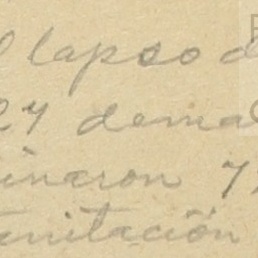 l lapso d
27 dema
inaron 7
nitación